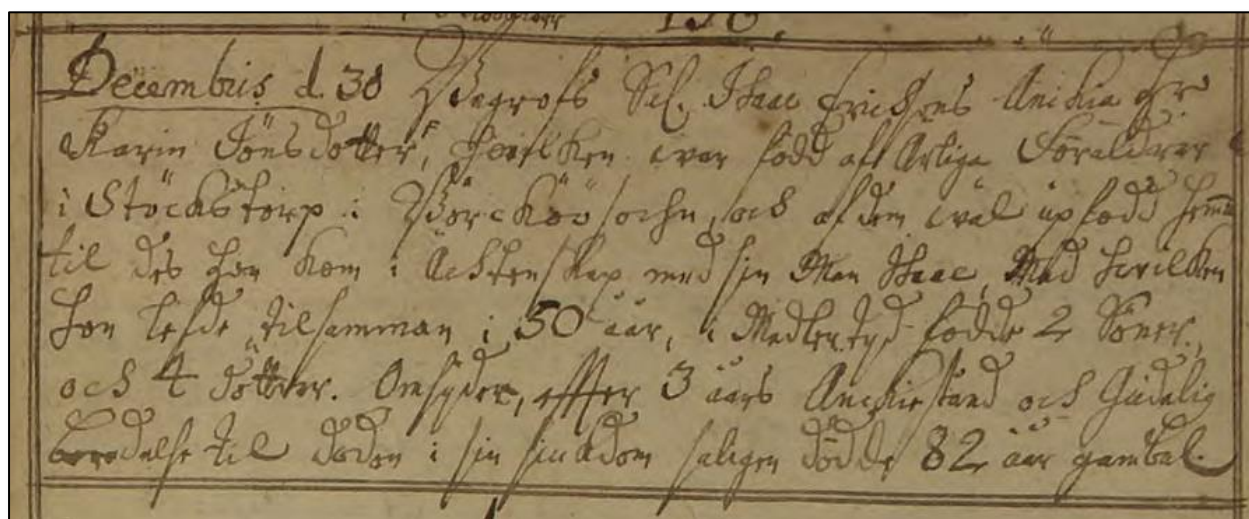 Decembris d. 30 Begrofs Sal. Isaac Erichsons Änckia Hr
Karin Jönsdotter, hwilken war född aff ärliga Föräldrar
i Stöckstorp i Börcköö sochn, och af dem wäl upfödd hemma
til des hon kom i Ächtenskap med sin Man Isaac, Med hwilken
hon lefde tilsamman i 50 åår, i Medlertyd födde 2 Söner,
och 4 döttrar. Omsyder, effter 3 åårs Anckiestand och Gudelig
beredelse til döden i sin siukdom saligen dödde 82 åår gammel.